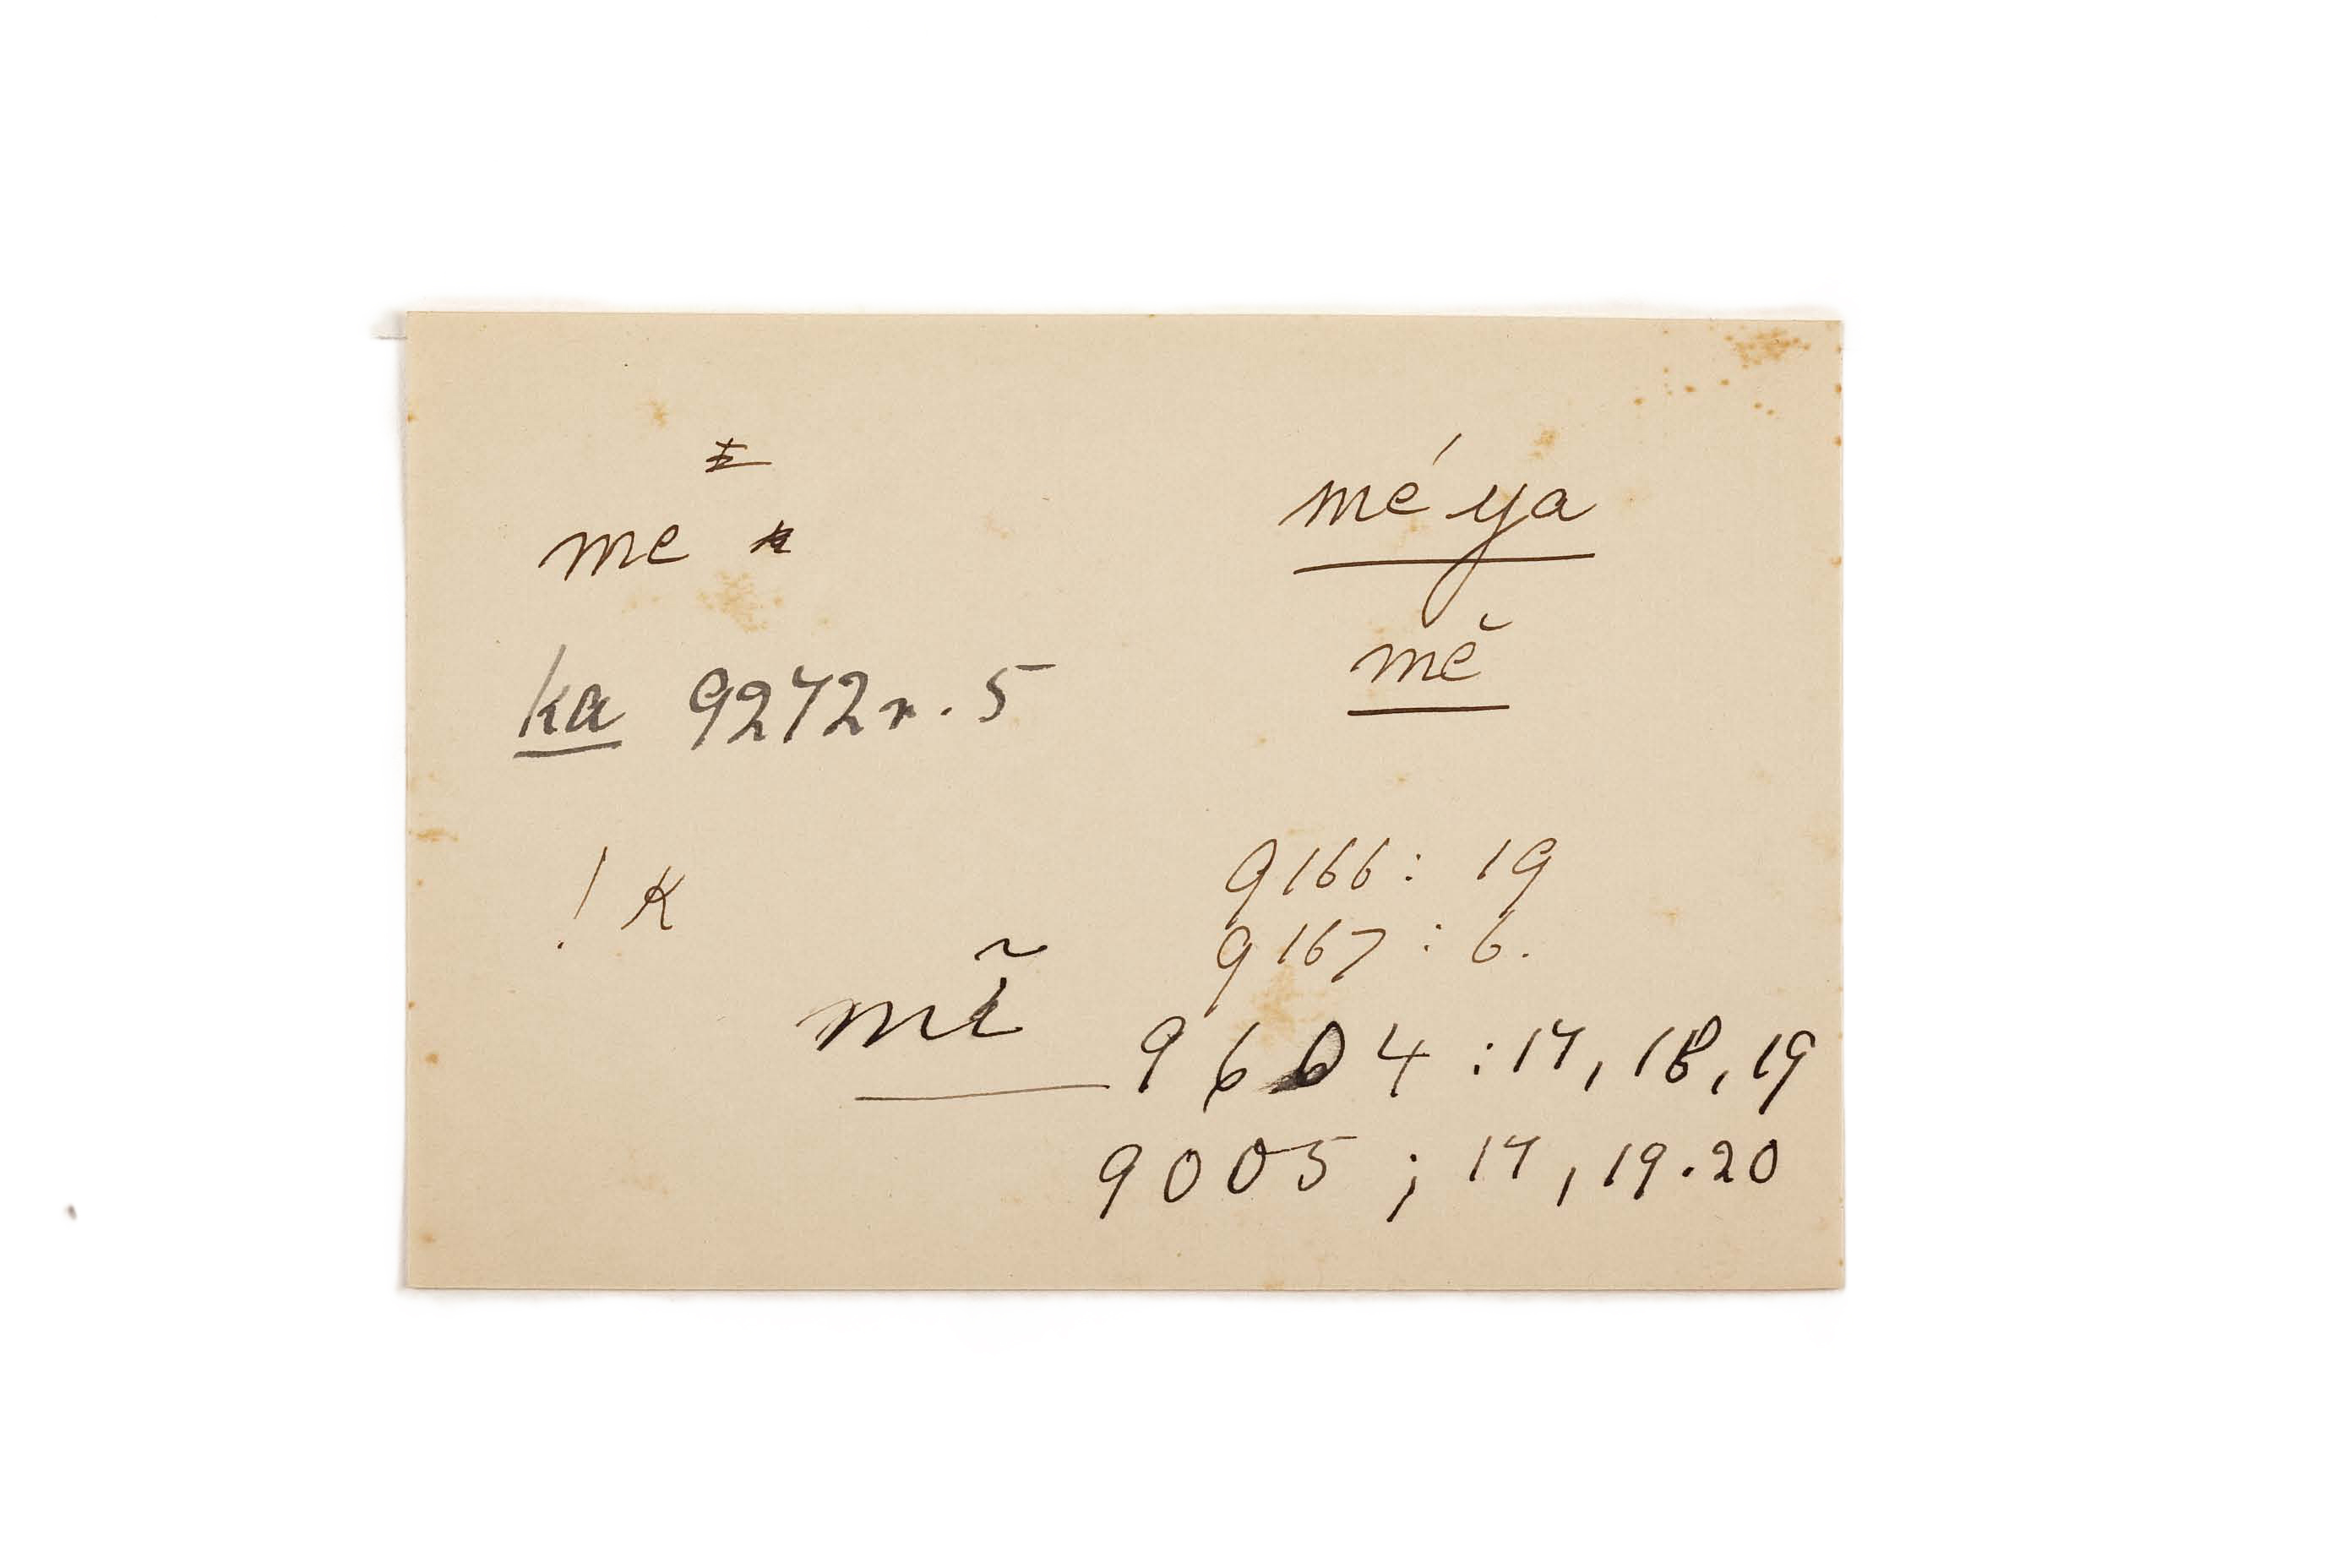 me
mé ya
mĕ
ka 9272 r. 5
! K
9166: 19
9167: 6.
mĩ 9604: 17, 18, 19
9005; 17, 19.20